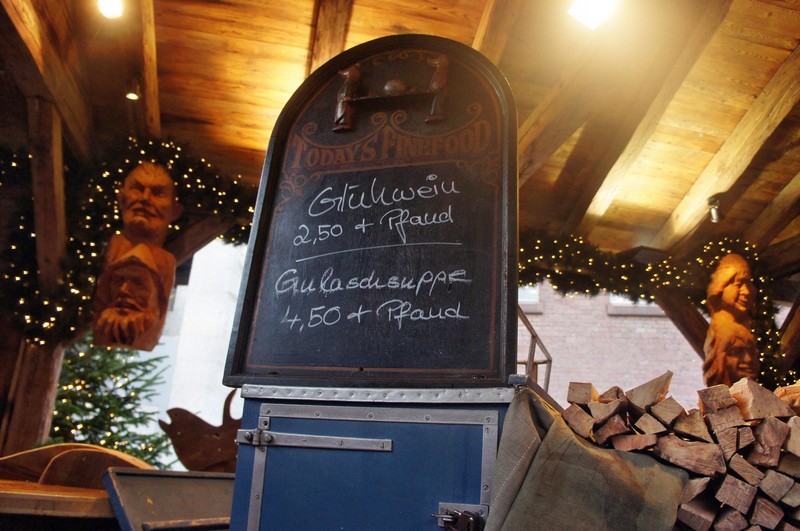 TODAY'S FINEFOOD
Glühwein
2,50 + Pfand
Gulaschsuppe
4,50 + Pfand